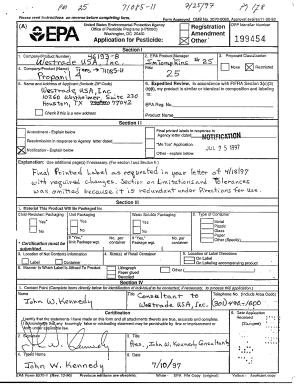 PM 25 71085-11 9/25/97 M 128
Please read instructions on reverse before completing form.
Form Approved.
United States Environmental Protection Agency
Office of Pesticide Programs (H7505C)
Washington, DC 20460
Application for Pesticide:
Registration
Amendment
Other
OPP Identifier Number
199454
Section I
1. Company/Product Number
46193-8
2. EPA Product Manager
Jim Tompkins # 25
3. Proposed Classification
None
Restricted
4. Company/Product (Name)
Westrade USA, Inc.
Propanil 4 71085-11
PM#
25
5. Name and Address of Applicant (Include ZIP Code)
Westrade USA, Inc.
10260 Westheimer, Suite 230
Houston, TX 77042
Check if this is a new address
6. Expedited Review. In accordance with FIFRA Section 3(c)(3)
my product is similar or identical in composition and labeling
to:
EPA Reg. No.
Product Name
Section II
Amendment - Explain below
Resubmission in response to Agency letter dated
Notification - Explain below
Final printed labels in response to
Agency letter dated
"Me Too" Application.
Other - explain below
NOTIFICATION
JUL 25 1997
Explanation: Use additional page(s) if necessary. (For section I and Section II.)
Final Printed Label as requested in your letter of 4/18/97
with required changes. Section on Limitations and Tolerances
was omitted because it is redundant under Directions for Use.
Section III
1. Material This Product Will Be Packaged In:
Child-Resistant Packaging
Yes
No
* Certification must be
submitted
Unit Packaging
Yes
No
If "Yes,"
Unit Package wgt.
No. per
container
Water Soluble Packaging
Yes
No
If "Yes,"
Package wgt.
No. per
container
2. Type of Container
Metal
Plastic
Glass
Paper
Other (Specify)
3. Location of Net Contents Information
Label
Container
4. Size(s) of Retail Container
5. Location of Label Directions
On Label
On Labeling accompanying product
6. Manner in Which Label is Affixed To Product
Lithograph
Paper glued
Stenciled
Other
Section IV
1. Contact Point
Name
John W. Kennedy
Title
Consultant to
Westrade USA, Inc.
Telephone No. (Include Area Code)
Certification
I certify that the statements I have made on this form and all attachments thereto are true, accurate and complete.
6. Date Application
Received
(Stamped)
2. Signature
3. Title
Pres, John W. Kennedy Consultants
4. Typed Name
John W. Kennedy
5. Date
7/10/97